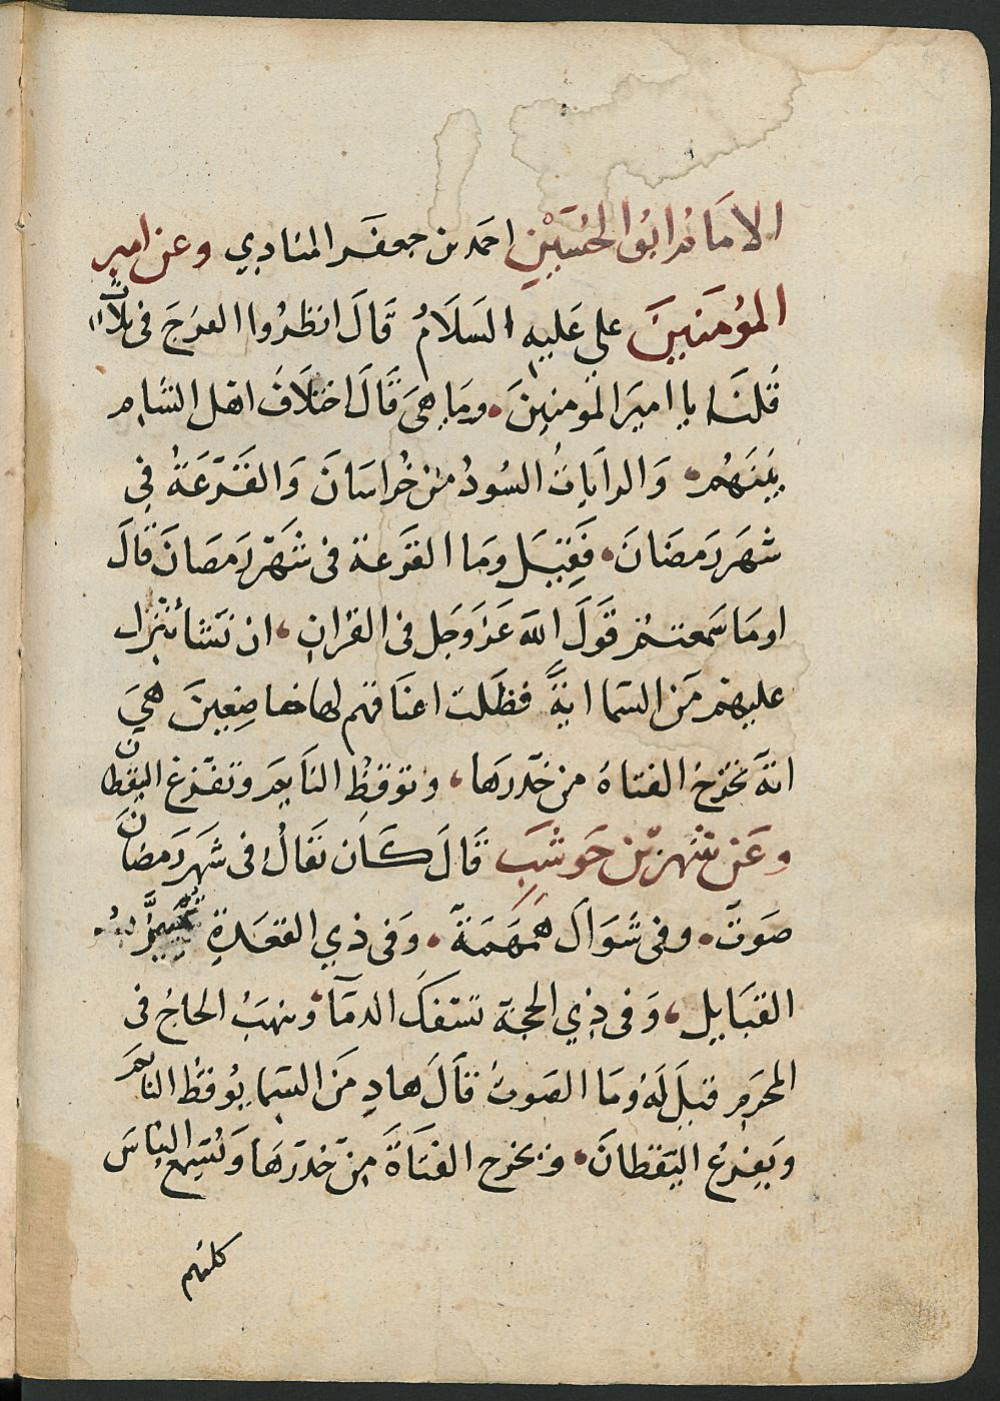 الامام ابو الحسين احمد بن جعفر المنادي وعن امير
المؤمنين علي عليه السلام قال انظروا الفرج في ثلاث
قلنا يا امير المومنين وما هي قال اختلاف اهل الشام
بينهم والرايات السود من خراسان والفزعة في
شهر رمضان فقيل وما الفزعة في شهر رمضان قال
اوما سمعتم قول الله عز وجل في القران ان نشأ ننزل
عليهم من السما اية فظلت اعناقهم لها خاضعين هي
اية تخرج الفتاة من خدرها وتوقظ النايم وتفزع اليقظان
وعن شهر بن حوشب قال كان يقال في شهر رمضان
صوت وفي شوال همهمة وفي ذي القعدة تميز
القبايل وفي ذي الحجة تسفك الدما وينهب الحاج في
المحرم قيل له وما الصوت قال هاد من السما يوقظ النايم
ويفزع اليقظان ويخرج الفتاة من خدرها ويسمع الناس
كلهم